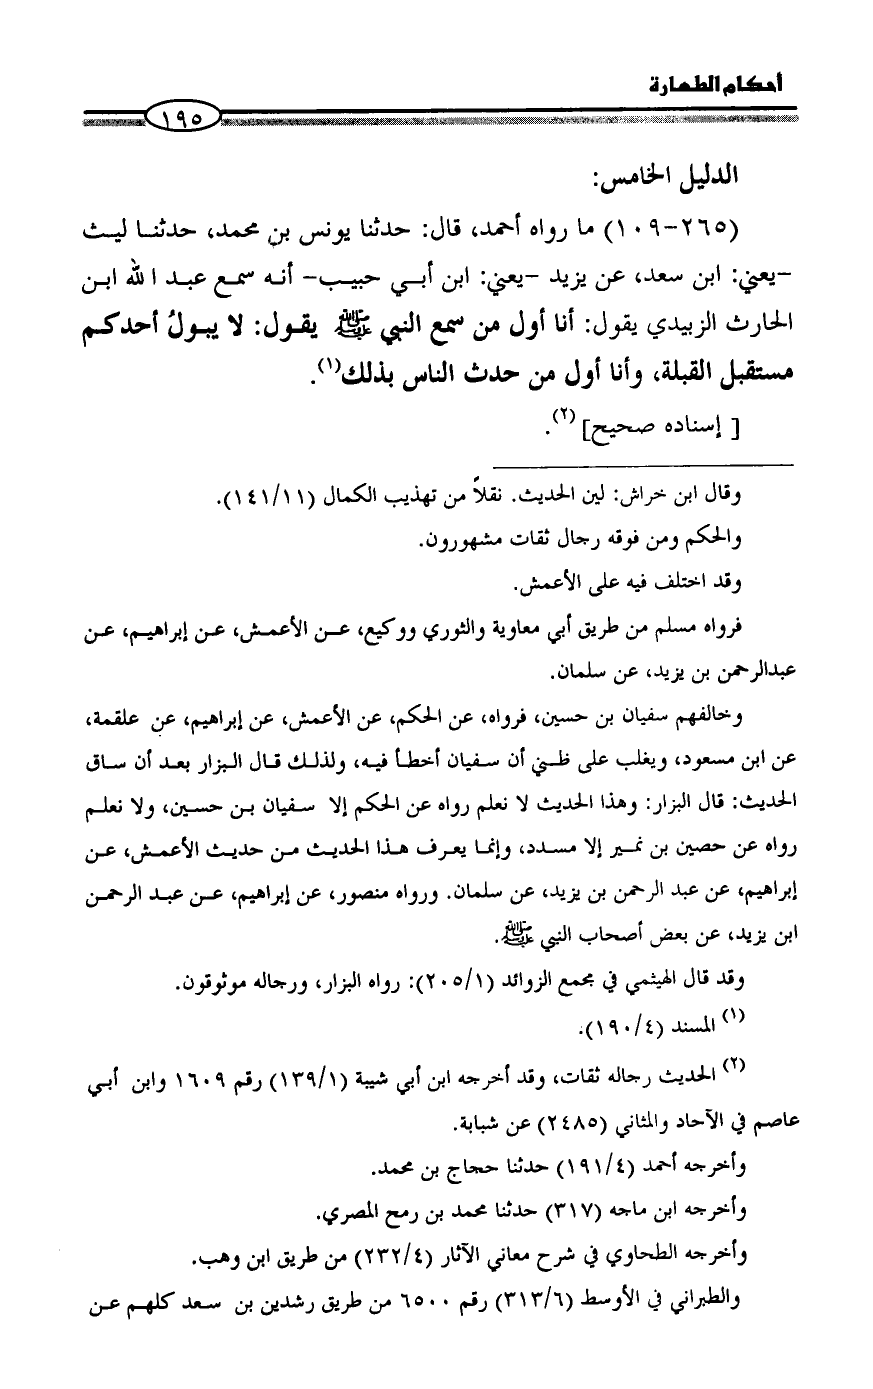 أحكام الطهارة
١٩٥
الدليل الخامس:
(٢٦٥-١٠٩) ما رواه أحمد، قال: حدثنا يونس بن محمد، حدثنا ليث
-يعني: ابن سعد، عن يزيد -يعني: ابن أبي حبيب- أنه سمع عبد الله ابن
الحارث الزبيدي يقول: أنا أول من سمع النبي ﷺ يقول: لا يبولُ أحدكم
مستقبل القبلة، وأنا أول من حدث الناس بذلك(١).
[ إسناده صحيح] (٢).
وقال ابن خراش: لين الحديث. نقلاً من تهذيب الكمال (١٤١/١١).
والحكم ومن فوقه رجال ثقات مشهورون.
وقد اختلف فيه على الأعمش.
فرواه مسلم من طريق أبي معاوية والثوري ووكيع، عن الأعمش، عن إبراهيم، عن
عبدالرحمن بن يزيد، عن سلمان.
وخالفهم سفيان بن حسين، فرواه، عن الحكم، عن الأعمش، عن إبراهيم، عن علقمة،
عن ابن مسعود، ويغلب على ظني أن سفيان أخطأ فيه، ولذلك قال البزار بعد أن ساق
الحديث: قال البزار: وهذا الحديث لا نعلم رواه عن الحكم إلا سفيان بن حسين، ولا نعلم
رواه عن حصين بن نمير إلا مسدد، وإنما يعرف هذا الحديث من حديث الأعمش، عن
إبراهيم، عن عبد الرحمن بن يزيد، عن سلمان. ورواه منصور، عن إبراهيم، عن عبد الرحمن
ابن يزيد، عن بعض أصحاب النبي ﷺ.
وقد قال الهيثمي في مجمع الزوائد (٢٠٥/١): رواه البزار، ورجاله موثوقون.
(١) المسند (١٩٠/٤).
(٢) الحديث رجاله ثقات، وقد أخرجه ابن أبي شيبة (١٣٩/١) رقم ١٦٠٩ وابن أبي
عاصم في الآحاد والمثاني (٢٤٨٥) عن شبابة.
وأخرجه أحمد (١٩١/٤) حدثنا حجاج بن محمد.
وأخرجه ابن ماجه (٣١٧) حدثنا محمد بن رمح المصري.
وأخرجه الطحاوي في شرح معاني الآثار (٢٣٢/٤) من طريق ابن وهب.
والطبراني في الأوسط (٣١٣/٦) رقم ٦٥٠٠ من طريق رشدين بن سعد كلهم عن